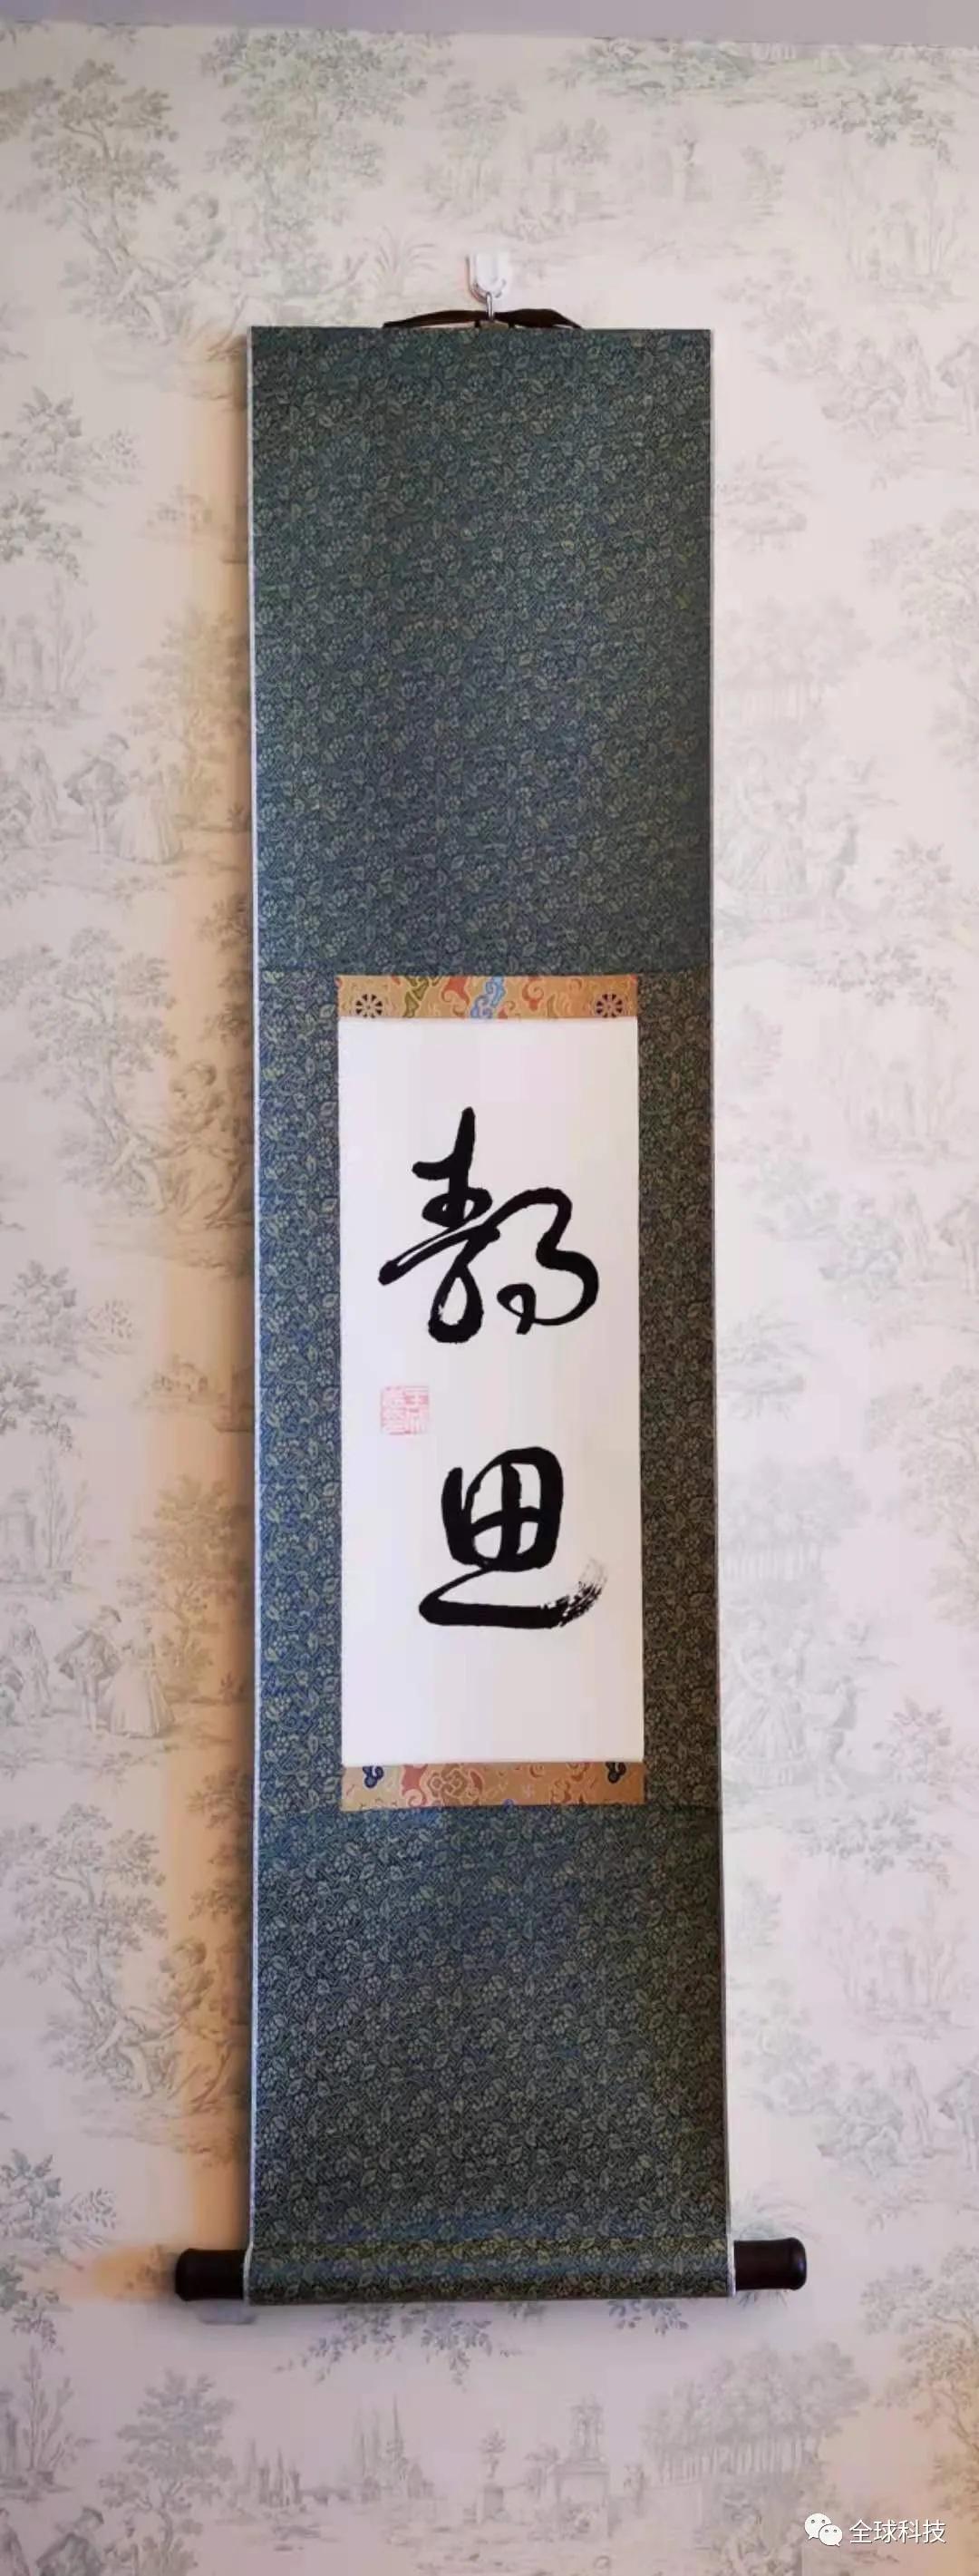 静思
全球科技